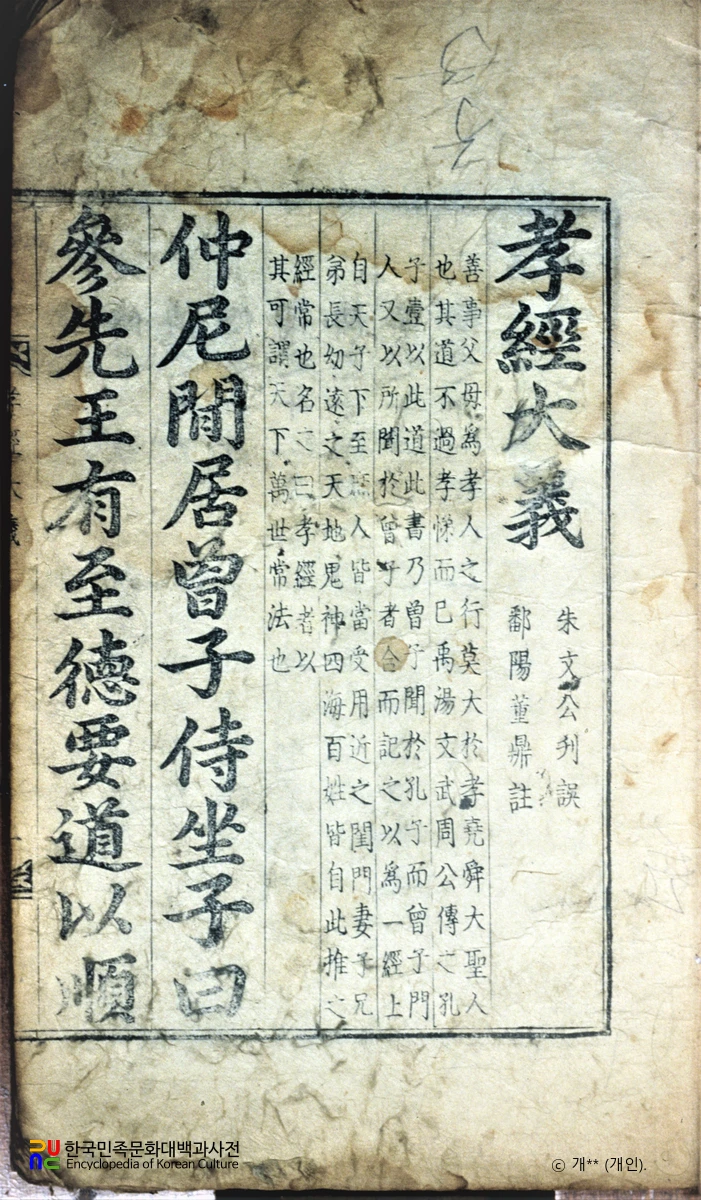 孝經大義
朱文公刋誤
鄱陽董鼎註
善事父母爲孝人之行莫大於孝堯舜大聖人
也其道不過孝悌而已禹湯文武周公傳之孔
子壹以此道此書乃曾子聞於孔子而曾子門
人又以所聞於曾子者合而記之以爲一經上
自天子下至庶人皆當受用近之閨門妻子兄
弟長幼遠之天地鬼神四海百姓皆自此推之
經常也名之曰孝經者以
其可謂天下萬世常法也
仲尼閒居曾子侍坐子曰
參先王有至德要道以順
孝經大義
한국민족문화대백과사전
Encyclopedia of Korean Culture
ⓒ 개** (개인).